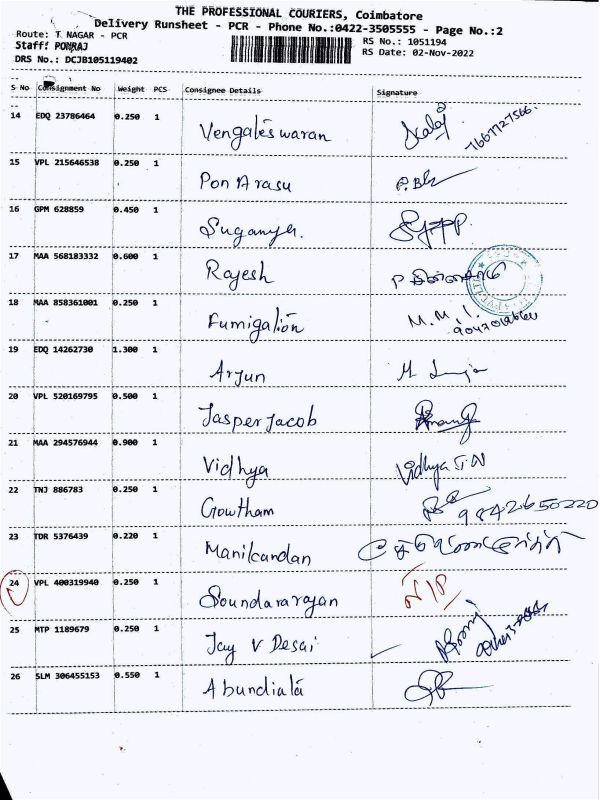 THE PROFESSIONAL COURIERS, Coimbatore
Delivery Runsheet - PCR - Phone No.:0422-3505555 - Page No.:2
Route: T NAGAR - PCR
RS No.: 1051194
Staff: PONRAJ
RS Date: 02-Nov-2022
DRS No.: DCJB105119402
S No Consignment No Weight PCS Consignee Details Signature
14 EDQ 23786464 0.250 1 Vengaleswaran
15 VPL 215646538 0.250 1 Pon Arasu
16 GPM 628859 0.450 1 Suganya.
17 MAA 568183332 0.600 1 Rajesh
18 MAA 858361001 0.250 1 Fumigation M.M.
19 EDQ 14262730 1.300 1 Arjun
20 VPL 520169795 0.500 1 Jasper Jacob
21 MAA 294576944 0.900 1 Vidhya Vidhya
22 TNJ 886783 0.250 1 Gowtham 9842650220
23 TDR 5376439 0.220 1 Manikandan
24 VPL 400319940 0.250 1 Soundararajan
25 MTP 1189679 0.250 1 Jay V Desai
26 SLM 306455153 0.550 1